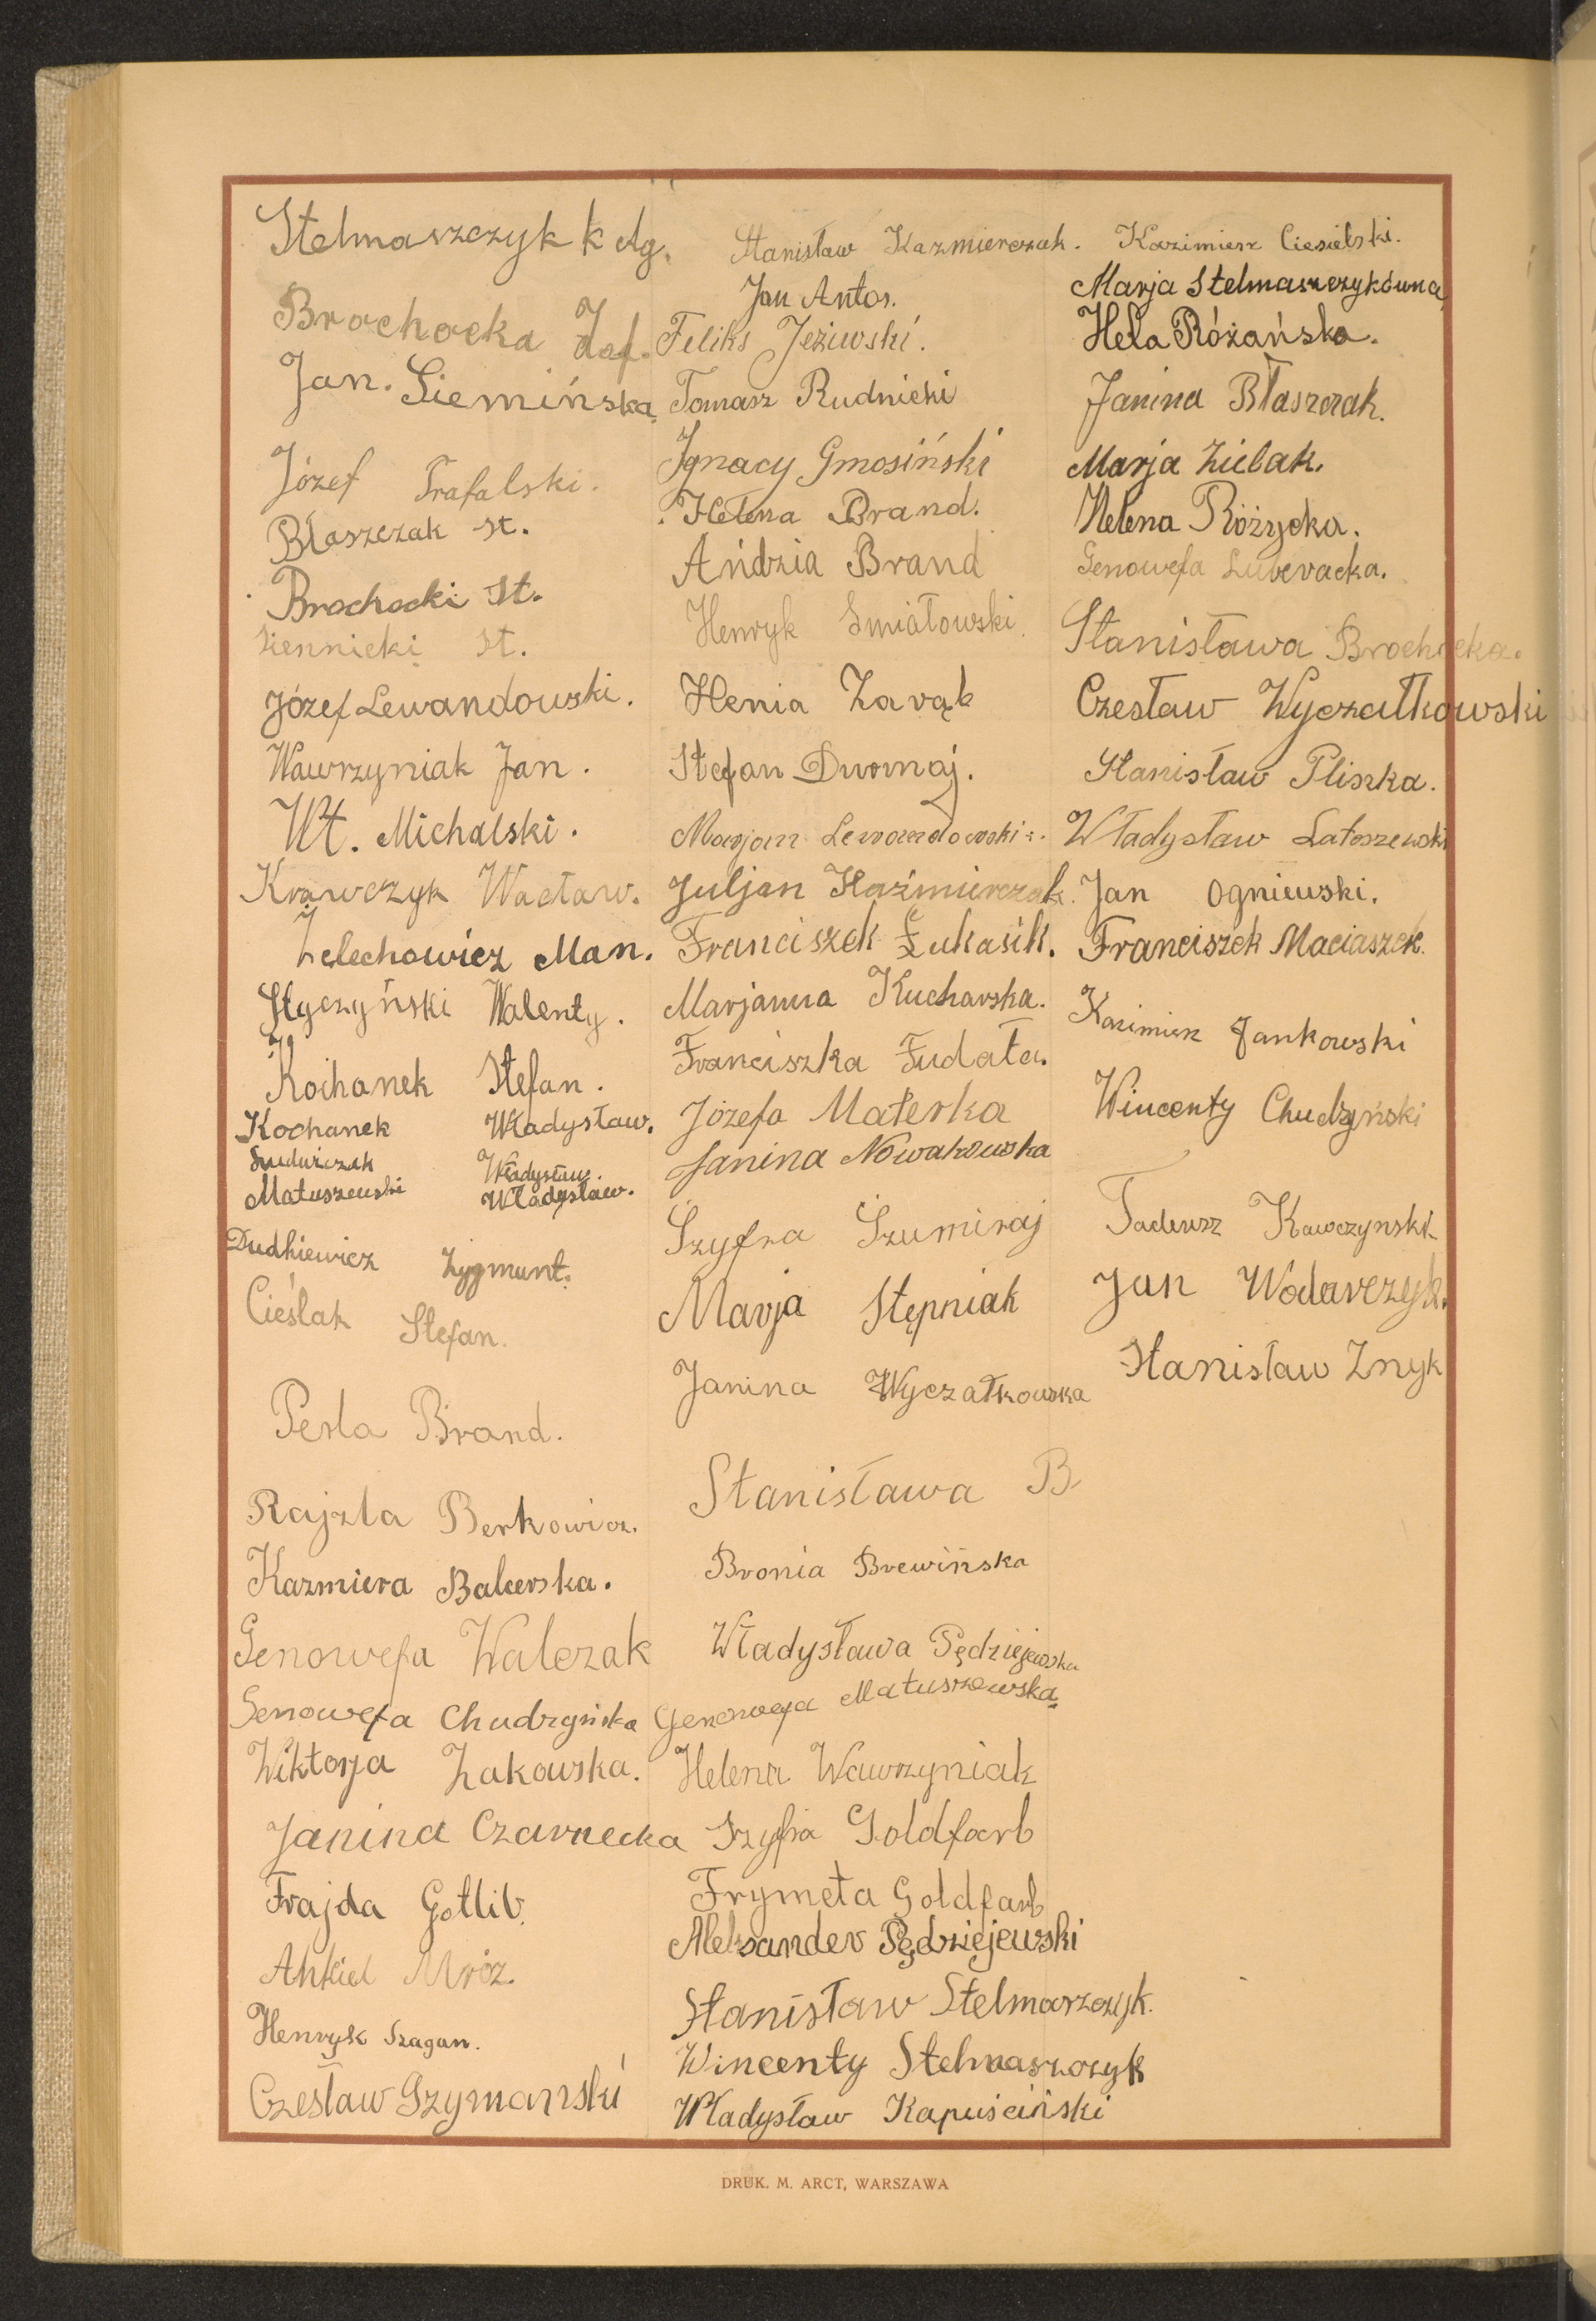 Stelmaszczyk k Ag.
Brochocka Józf.
Jan. Siemińska
Józef Trafalski.
Błaszczak St.
Brochocki St.
Siennicki St.
Józef Lewandowski.
Wawrzyniak Jan.
Wł. Michalski.
Krawczyk Wacław.
Żelechowicz Man.
Styczyński Walenty.
Kochanek Stefan.
Kochanek Władysław.
Władysław.
Matuszewski Władysław.
Dudkiewicz Zygmunt.
Cieślak Stefan.
Perla Brand.
Rajzla Berkowicz.
Kazmiera Balcerska.
Genowefa Walczak
Genowefa Chudzyńska
Wiktorja Żakowska.
Janina Czarnecka
Frajda Gotlib.
Mróz.
Henryk Szagan.
Czesław Szymański
Stanisław Kazmierczak.
Jan Antos.
Feliks Jeżiwski.
Tomasz Rudnicki
Ignacy Gmosiński
Helena Brand.
Ańdzia Brand
Henryk Smiałowski.
Henia Zarąb
Stefan Durmaj.
Marjan Lewandowski.
Juljan Kaźmierczak.
Franciszek Łukasik.
Marjanna Kucharska.
Franciszka Fudała.
Józefa Materka
Janina Nowakowska
Szyfra Szumiraj
Marja Stępniak
Janina Wyczałkowska
Stanisława B
Bronia Brewińska
Władysława Pędziejewska
Genowefa Matuszewska
Helena Wawrzyniak
Szyfra Goldfarb
Frymeta Goldfarb
Aleksander Pędziejewski
Stanisław Stelmaszczyk.
Wincenty Stelmaszczyk
Władysław Kapuściński
Kazimierz Ciesielski.
Marja Stelmaszczykówna
Hela Różańska.
Janina Błaszczak.
Marja Zielak.
Helena Różycka.
Genowefa
Stanisława Brochocka.
Czesław Wyczałkowski
Stanisław Pliszka.
Władysław Latoszewski
Jan Ogniewski.
Franciszek Maciaszek.
Kazimierz Jankowski
Wincenty Chudzyński
Tadeusz Kawczynski
Jan Wodarczyk.
Stanisław Znyk
DRUK. M. ARCT, WARSZAWA